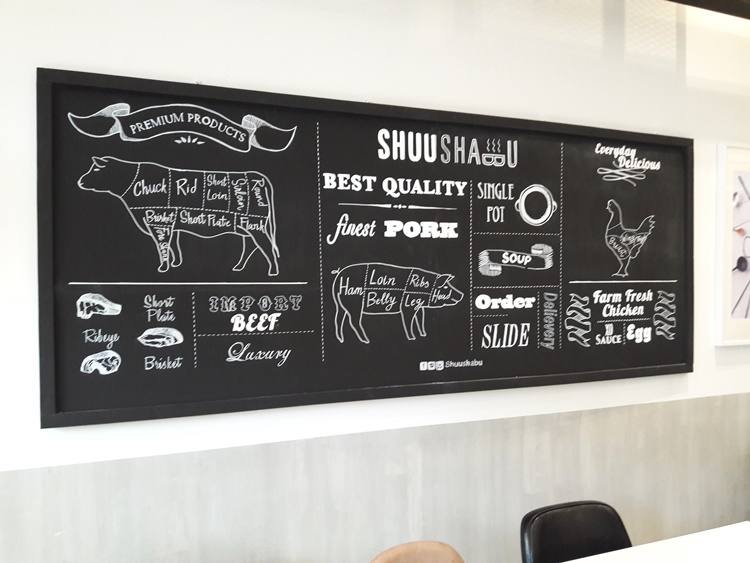 PREMIUM PRODUCTS
Chuck
Rid
Short
Loin
Sirloin
Round
Brisket
Short Plate
Flank
Fore Shank
Short
Plate
Ribeye
Brisket
IMPORT
BEEF
Luxury
SHUUSHABU
BEST QUALITY
finest PORK
Ham
Loin
Belly
Ribs
Leg
Head
SINGLE
POT
SOUP
Order
SLIDE
Delievery
Shuushabu
Everyday
Delicious
Breast
Farm Fresh
Chicken
SAUCE
Egg